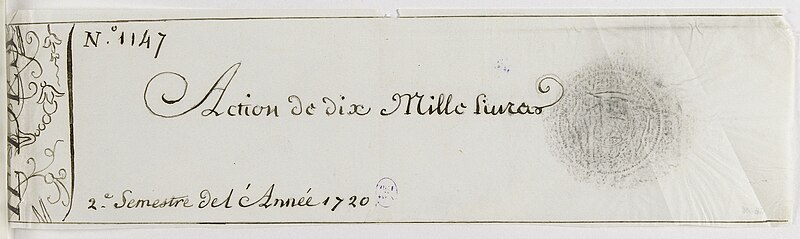 N.º 1147
Action de dix Mille livres
2.e Semestre de l'Année 1720